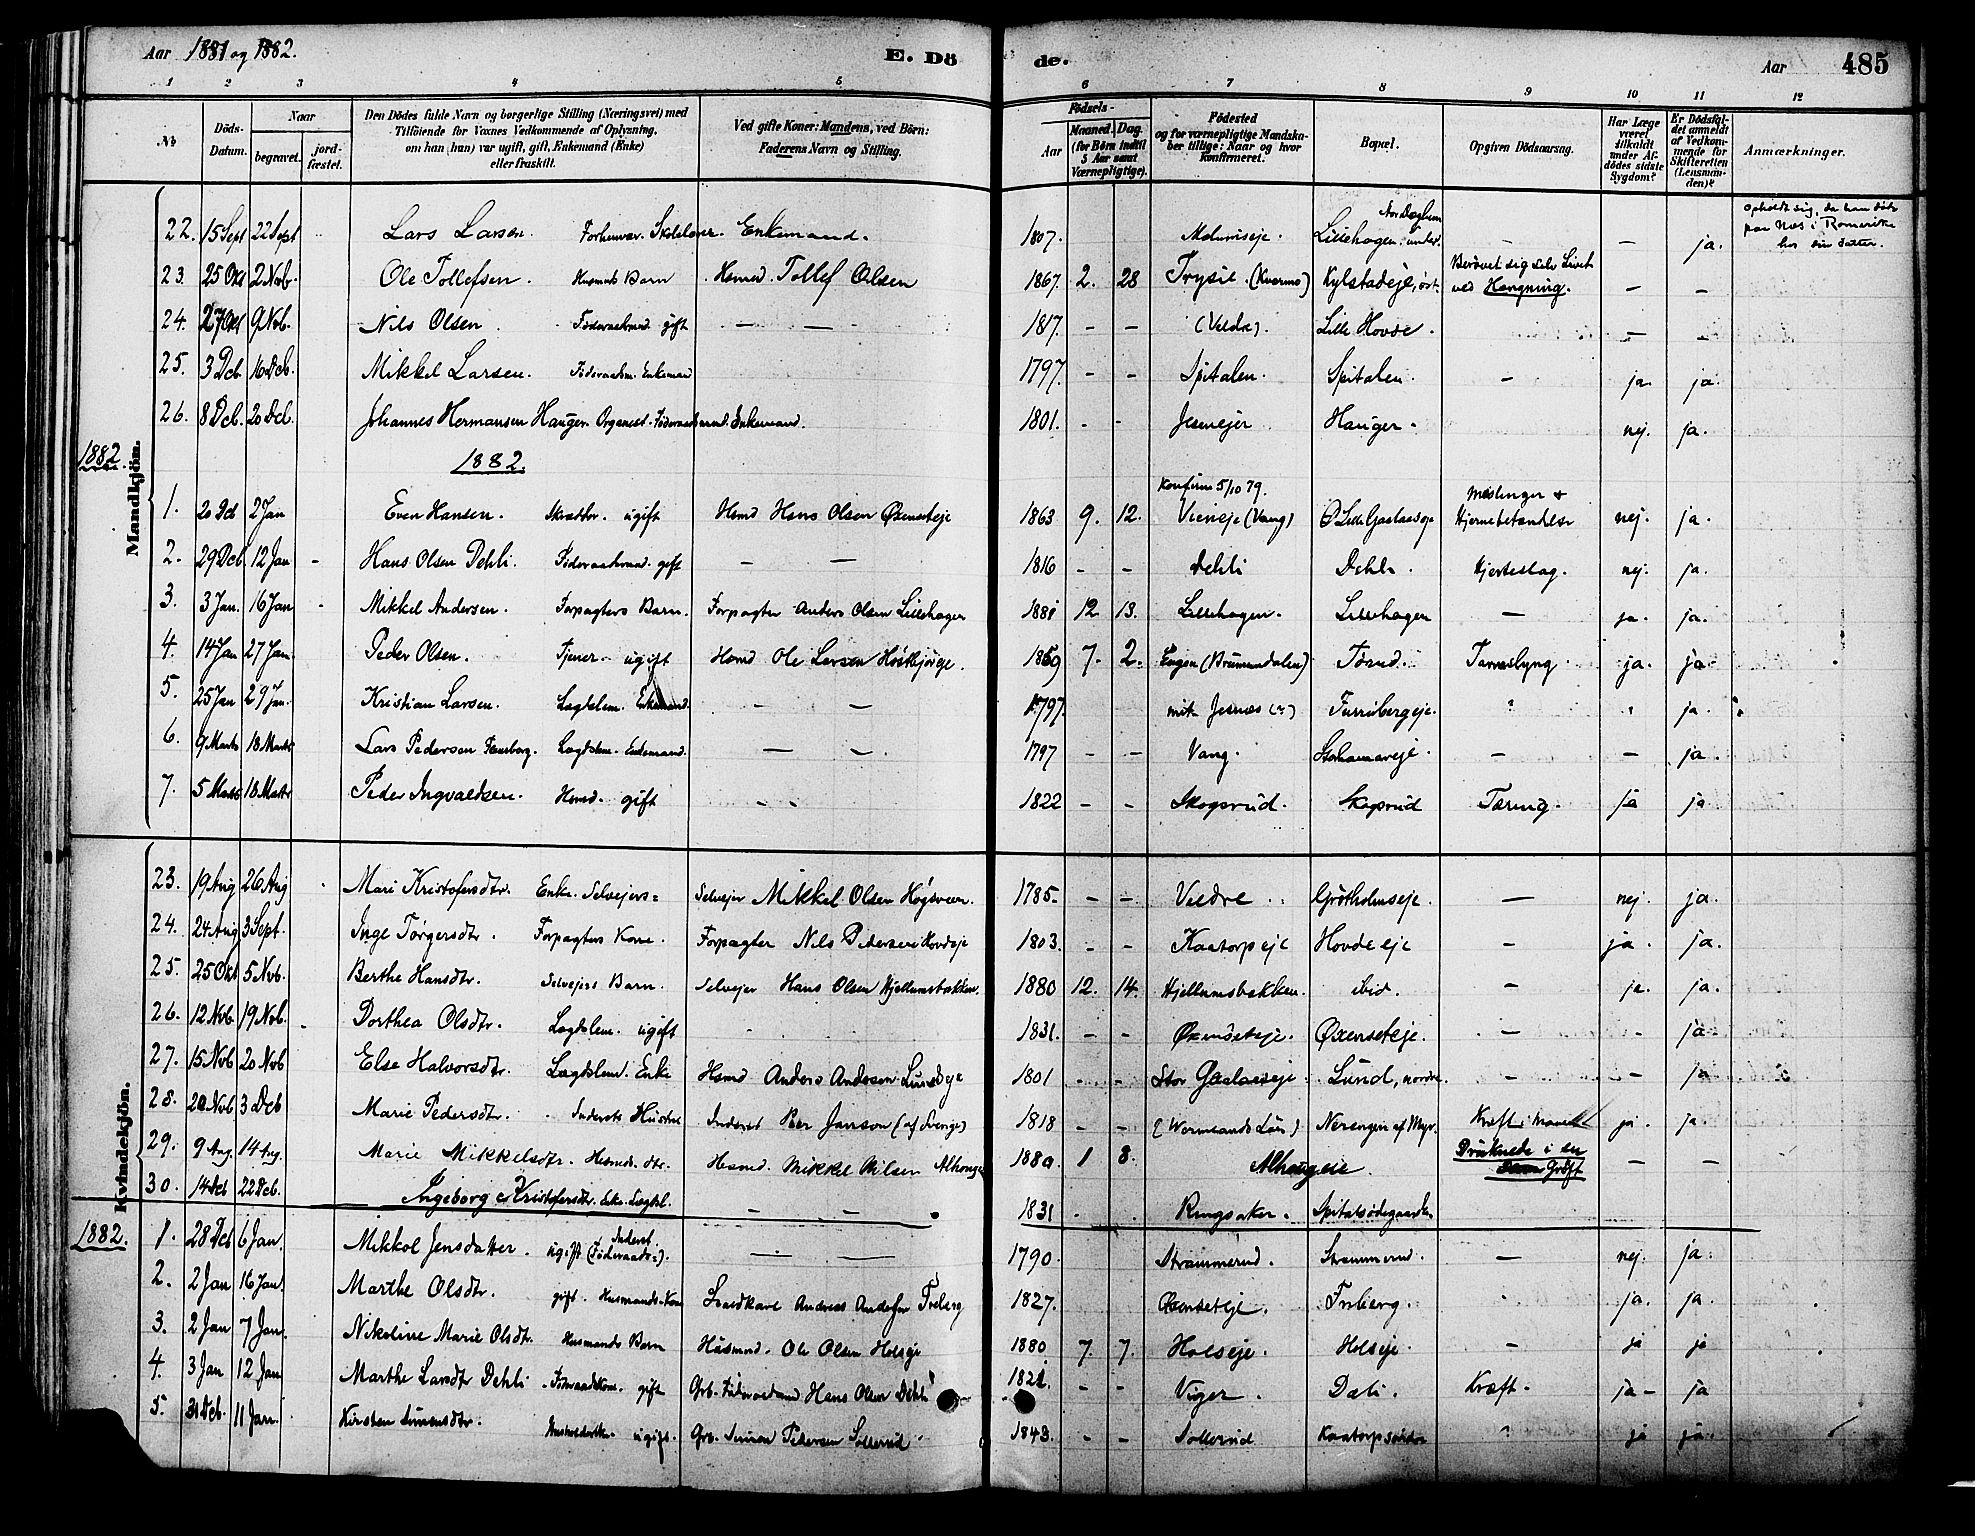 Aar 1881 og 1882.
E. Dö
de.
Aar
485
1 2 3 4 5 6 7 8 9 10 11 12
No
Döds-Datum.
Naar
begravet.
jord-fæstet.
Den Dödes fulde Navn og borgerlige Stilling (Næringsvei) med
Tilföiende for Voxnes Vedkommende af Oplysning,
om han (hun) var ugift, gift, Enkemand (Enke)
eller fraskilt.
Ved gifte Koner: Mandens, ved Börn:
Faderens Navn og Stilling.
Födsels-
Aar
Maaned. Dag.
(for Börn indtil
5 Aar samt
Værnepligtige).
Födested
og for værnepligtige Mandska-
ber tillige: Naar og hvor
konfirmeret.
Bopæl.
Opgiven Dödsaarsag.
Har Læge
været
tilkaldt
under Af-
dödes sidste
Sygdom?
Er Dödsfal-
det anmeldt
af Vedkom-
mende for
Skifteretten
(Lensman-
den)?
Anmærkninger.
Mandkjön.
22. 15 Sept 22 Sept Lars Larsen. Forhenvær. Skolelærer. Enkemand. 1807. Lillehagen under — — ja. opholdt sig, da han döde paa Næs i Romerike hos sin Datter.
23. 25 Okt 2 Nvb. Ole Tollefsen. Husmands Barn Hsmd. Tollef Olsen 1867. 2. 28 Trysil Kylstadeje, öst. Berövet sig selv Livet ved Hængning. — —
24. 27 Okt 9 Nvb. Nils Olsen. Föderaadsmd. gift — — 1817. — — (Veldre). Lille Hovde. — —
25. 3 Dcb. 16 Dcb. Mikkel Larsen. Föderaadsm. Enkemand 1797. — — Spitalen. Spitalen. — ja. ja.
26. 8 Dcb. 20 Dcb. Johannes Hermansen Hauger. Organist. Föderaadsmand. Enkemand. 1801. - - Hauger. nej. ja.
1882.
1882.
1. 20 Dcb 2 Jan Even Hansen. Skrædder. ugift Hsmd Hans Olsen Öxenseteje 1863 9. 12. Konfirm 5/10 79. Vieneje (Vang) Meslinger & Hjernebetændelse nej. ja.
2. 29 Dcb. 12 Jan - Hans Olsen Dehli. Föderaadsmand. gift — — 1816 — — Dehli Dehli. Hjerteslag. nej. ja.
3. 3 Jan. 16 Jan Mikkel Andersen. Forpagters Barn. Forpagter Anders Olsen Lillehagen 1881 12 13. Lillehagen. Lillehagen — ja. ja.
4. 14 Jan 27 Jan. Peder Olsen. Tjener. ugift Hsmd Ole Larsen 1859 7. 2. Engen (Brumundalen) Tarmslyng ja. ja.
5. 25 Jan 29 Jan. Kristian Larsen. Lægdslem. Enkemand. — — 1797. Furubergeje. ja.
6. 9 Marts 18 Marts Lars Pedersen Lægdslem. Enkemand. — — 1797 — — Vang. Storhamareje. — — ja.
7. 5 Marts 18 Marts Peder Ingvaldsen. Hsmd. gift - - 1822 - - Skogsrud. Skogsrud Tæring. ja ja.
Kvindekjön.
23. 19 Aug 26 Aug Mari Kristofersdtr. Enke. Selvejers= Selvejer Mikkel Olsen Högsveen. 1785 — — Veldre. Grötholmseje. — nej. ja.
24. 24 Aug 3 Sept. Inge Törgersdtr. Forpagters Kone. Forpagter Nils Pedersen Hovdeje 1803. - - Kaatorpeje Hovdeeje — ja. ja.
25. 25 Okt 5 Nvb. Berthe Hansdtr. Selvejers Barn. Selvejer Hans Olsen Hjellumsbakken. 1880 12. 14. Hjellumsbakken. ibid. — ja. ja.
26. 12 Nvb 19 Nvb. Dorthea Olsdtr. Lægdslem. ugift 1831. — — Öxenseteje. Öxenseteje. — - ja.
27. 15 Nvb 20 Nvb Else Halvorsdtr. Lægdslem. Enke Hsmd Anders Andersen Lundseje 1801 - - Stor Gaalaaseje. Lund, nordre — — ja
28. 20 Nvb 3 Dcb Marie Pedersdtr. Inderst Hustru Inderst Per Janson (af Sverige) 1818 — — (Wermlands Län) Nerengen af Myr. Kræft i Maven ja. ja.
29. 9 Aug. 14 Aug. Marie Mikkelsdtr. Husmds. dtr. Husmd. Mikkel Nilsen 1880. 1 8. Druknede i en Gröft — —
30. 14 Dcb 22 Dcb. Ingeborg Kristofersdtr. Enke. Lægdsl. — — 1831 Ringsaker.
1882.
1. 28 Dcb 6 Jan. Mikkol Jensdatter. ugift Inderst (Föderaads=). — — 1790. Strammerud. Strammerud. — nej. ja.
2. 2 Jan 16 Jan. Marthe Olsdtr. gift. Husmands Kone Andreas Andersen Freberg 1827. Öxenseteje. ja. ja.
3. 2 Jan 7 Jan. Nikoline Marie Olsdtr. Husmands Barn Husmd. Ole Olsen Holseje 1880 7. 7. Holseje. Holseje. — ja ja
4. 3 Jan 12 Jan Marthe Larsdtr Dehli. gift Grb. Hans Olsen Dehli 1821. - - Kræft. ja ja
5. 31 Dcb. 11 Jan. Kirsten Simensdtr. ugift. Grb. Simen Pedersen Sollerud 1843. - - Sollerud ja ja.